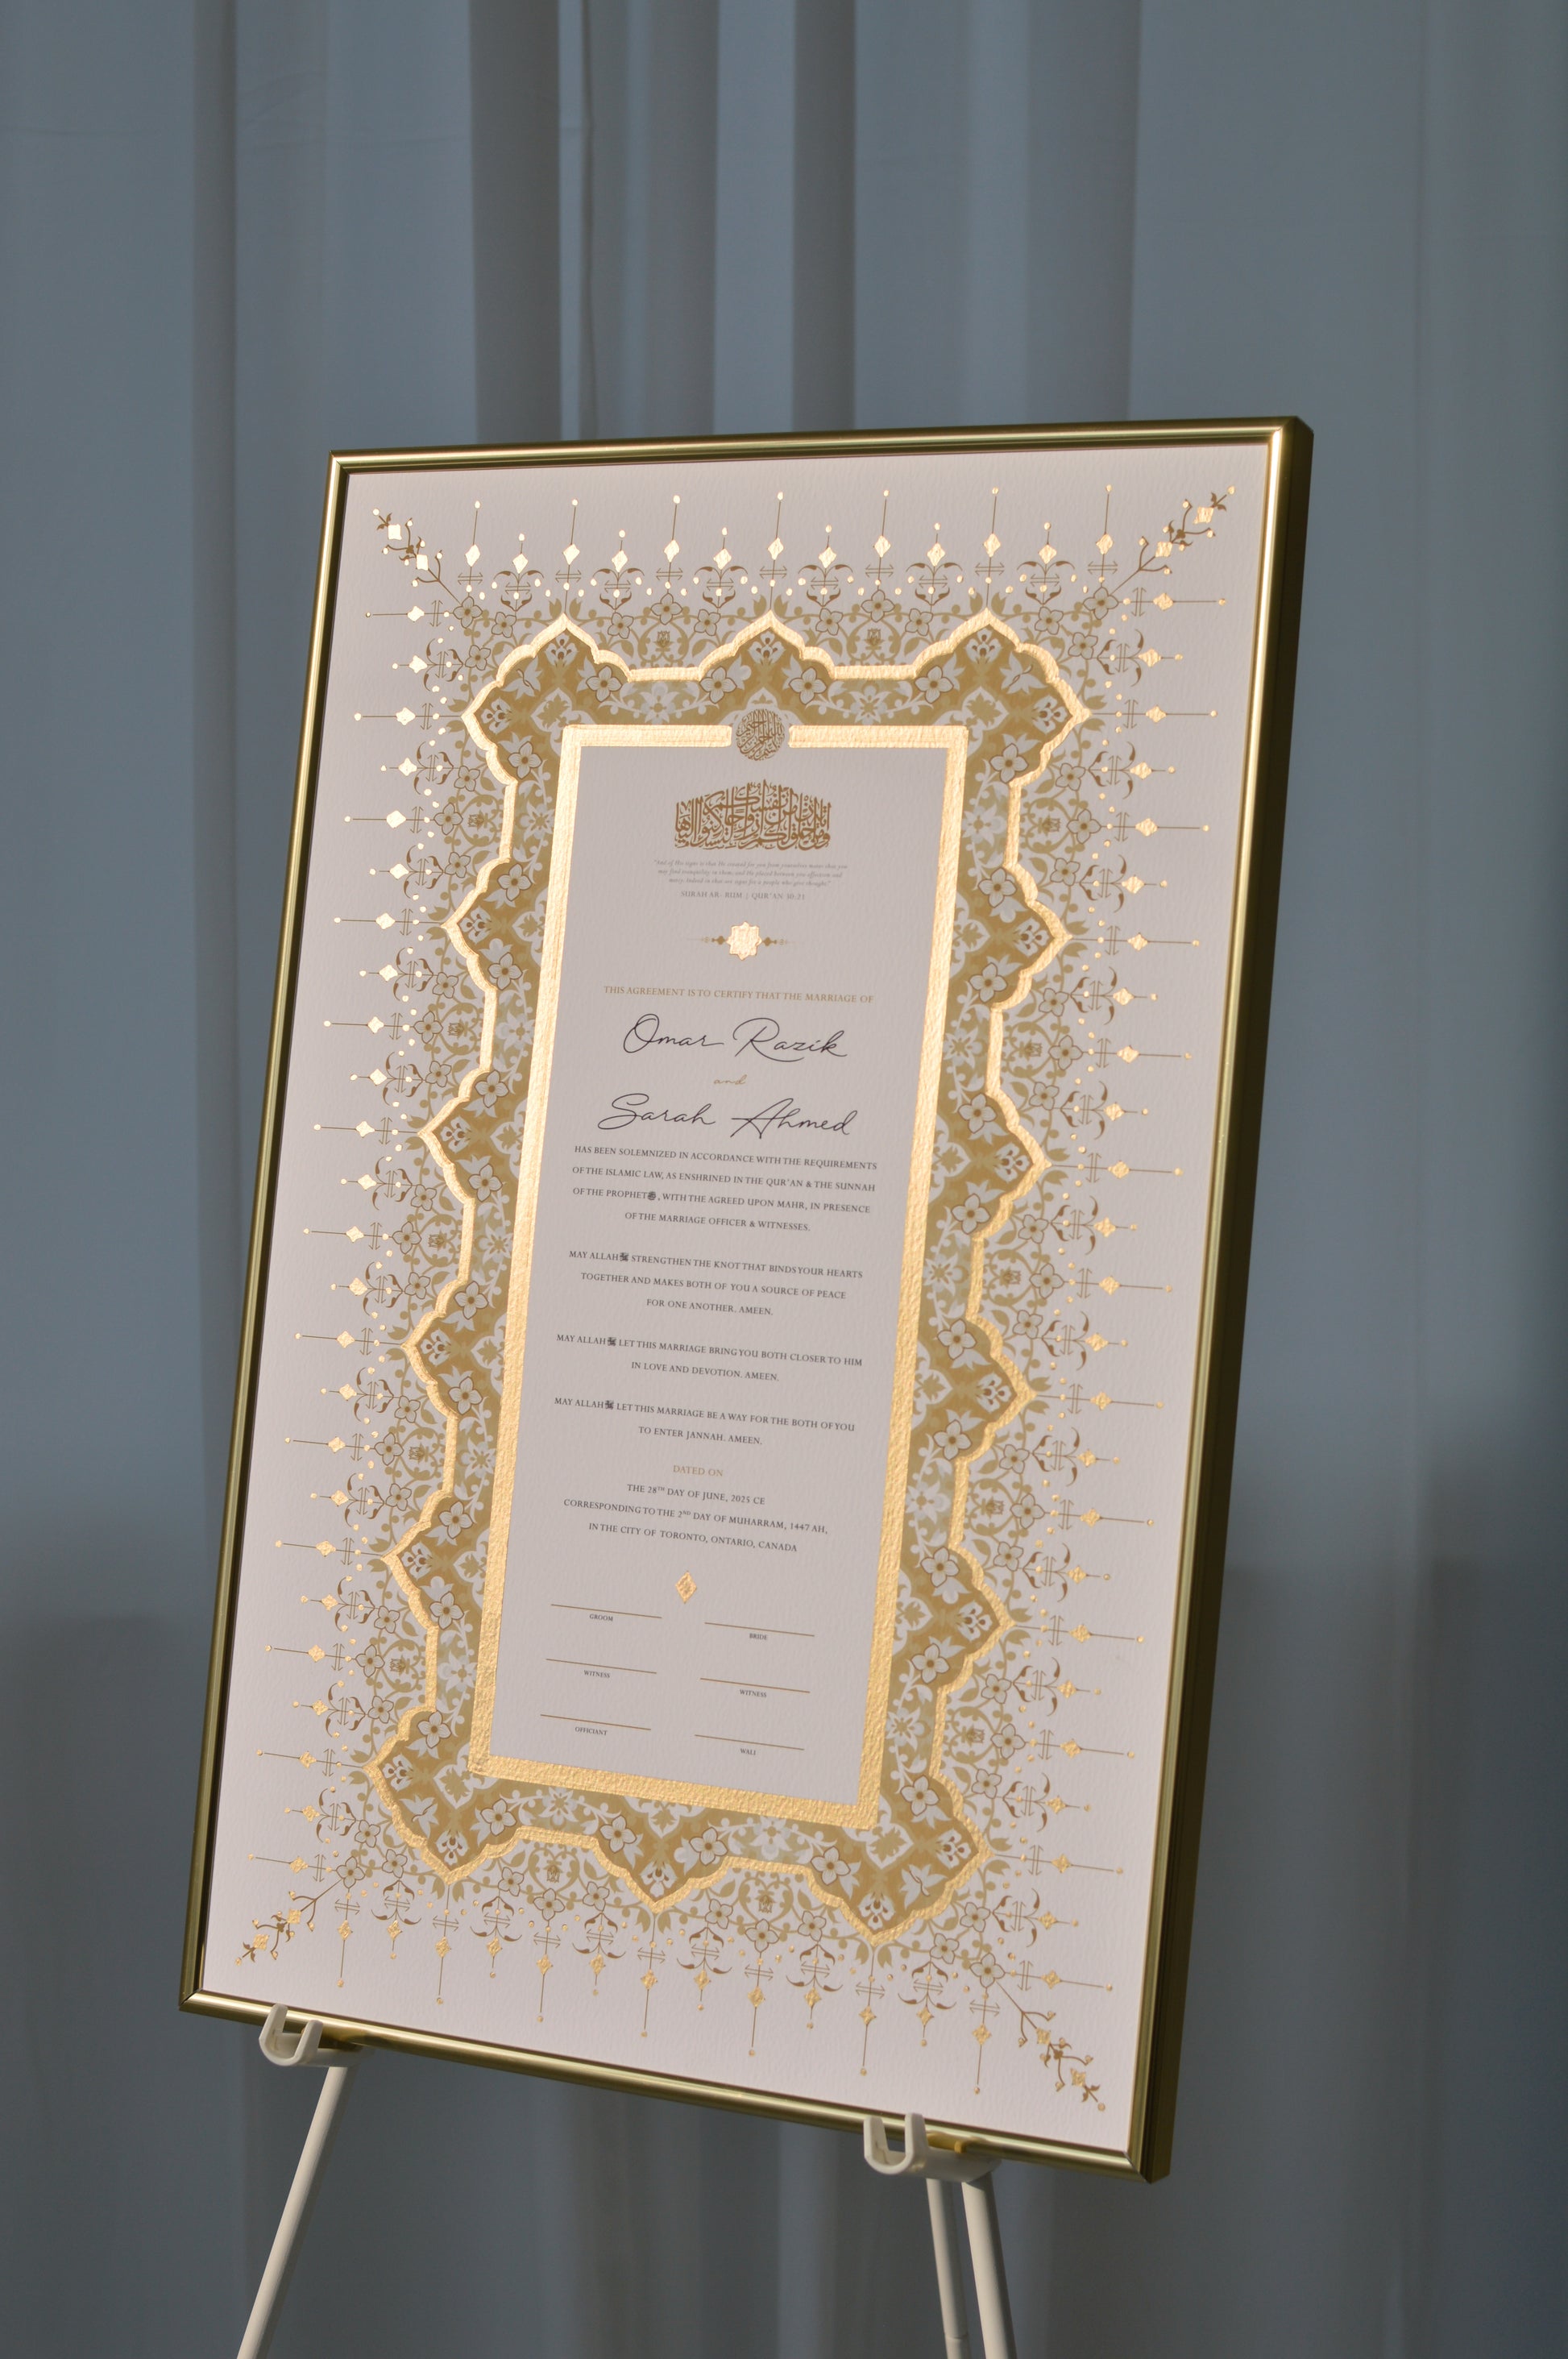 ومن آياته أن خلق لكم من أنفسكم أزواجا لتسكنوا إليها
"And of His signs is that He created for you from yourselves mates that you
may find tranquility in them and He placed between you affection and
mercy. Indeed in that are signs for a people who give thought."
SURAH AR- RUM | QUR'AN 30:21
THIS AGREEMENT IS TO CERTIFY THAT THE MARRIAGE OF
Omar Razik
and
Sarah Ahmed
HAS BEEN SOLEMNIZED IN ACCORDANCE WITH THE REQUIREMENTS
OF THE ISLAMIC LAW, AS ENSHRINED IN THE QUR'AN & THE SUNNAH
OF THE PROPHET ﷺ, WITH THE AGREED UPON MAHR, IN PRESENCE
OF THE MARRIAGE OFFICER & WITNESSES.
MAY ALLAH STRENGTHEN THE KNOT THAT BINDS YOUR HEARTS
TOGETHER AND MAKES BOTH OF YOU A SOURCE OF PEACE
FOR ONE ANOTHER. AMEEN.
MAY ALLAH LET THIS MARRIAGE BRING YOU BOTH CLOSER TO HIM
IN LOVE AND DEVOTION. AMEEN.
MAY ALLAH LET THIS MARRIAGE BE A WAY FOR THE BOTH OF YOU
TO ENTER JANNAH. AMEEN.
DATED ON
THE 28TH DAY OF JUNE, 2025 CE
CORRESPONDING TO THE 2ND DAY OF MUHARRAM, 1447 AH,
IN THE CITY OF TORONTO, ONTARIO, CANADA
GROOM
BRIDE
WITNESS
WITNESS
OFFICIANT
WALI